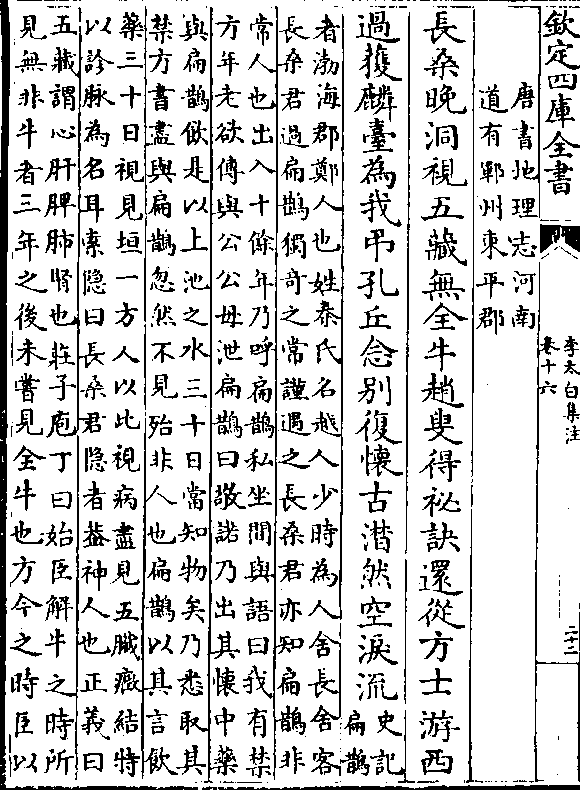 欽定四庫全書
李太白集注
卷十六
二十二
唐書地理志河南
道有鄆州東平郡
長桑晚洞視五藏無全牛趙叟得祕訣還從方士游西
過獲麟臺為我弔孔丘念別復懷古潸然空淚流
史記
扁鵲
者渤海郡鄭人也姓秦氏名越人少時為人舍長舍客
長桑君過扁鵲獨奇之常謹遇之長桑君亦知扁鵲非
常人也出入十餘年乃呼扁鵲私坐間與語曰我有禁
方年老欲傳與公公毋泄扁鵲曰敬諾乃出其懷中藥
與扁鵲飲是以上池之水三十日當知物矣乃悉取其
禁方書盡與扁鵲忽然不見殆非人也扁鵲以其言飲
藥三十日視見垣一方人以此視病盡見五臟癥結特
以診脉為名耳索隱曰長桑君隱者葢神人也正義曰
五藏謂心肝脾肺腎也莊子庖丁曰始臣解牛之時所
見無非牛者三年之後未嘗見全牛也方今之時臣以